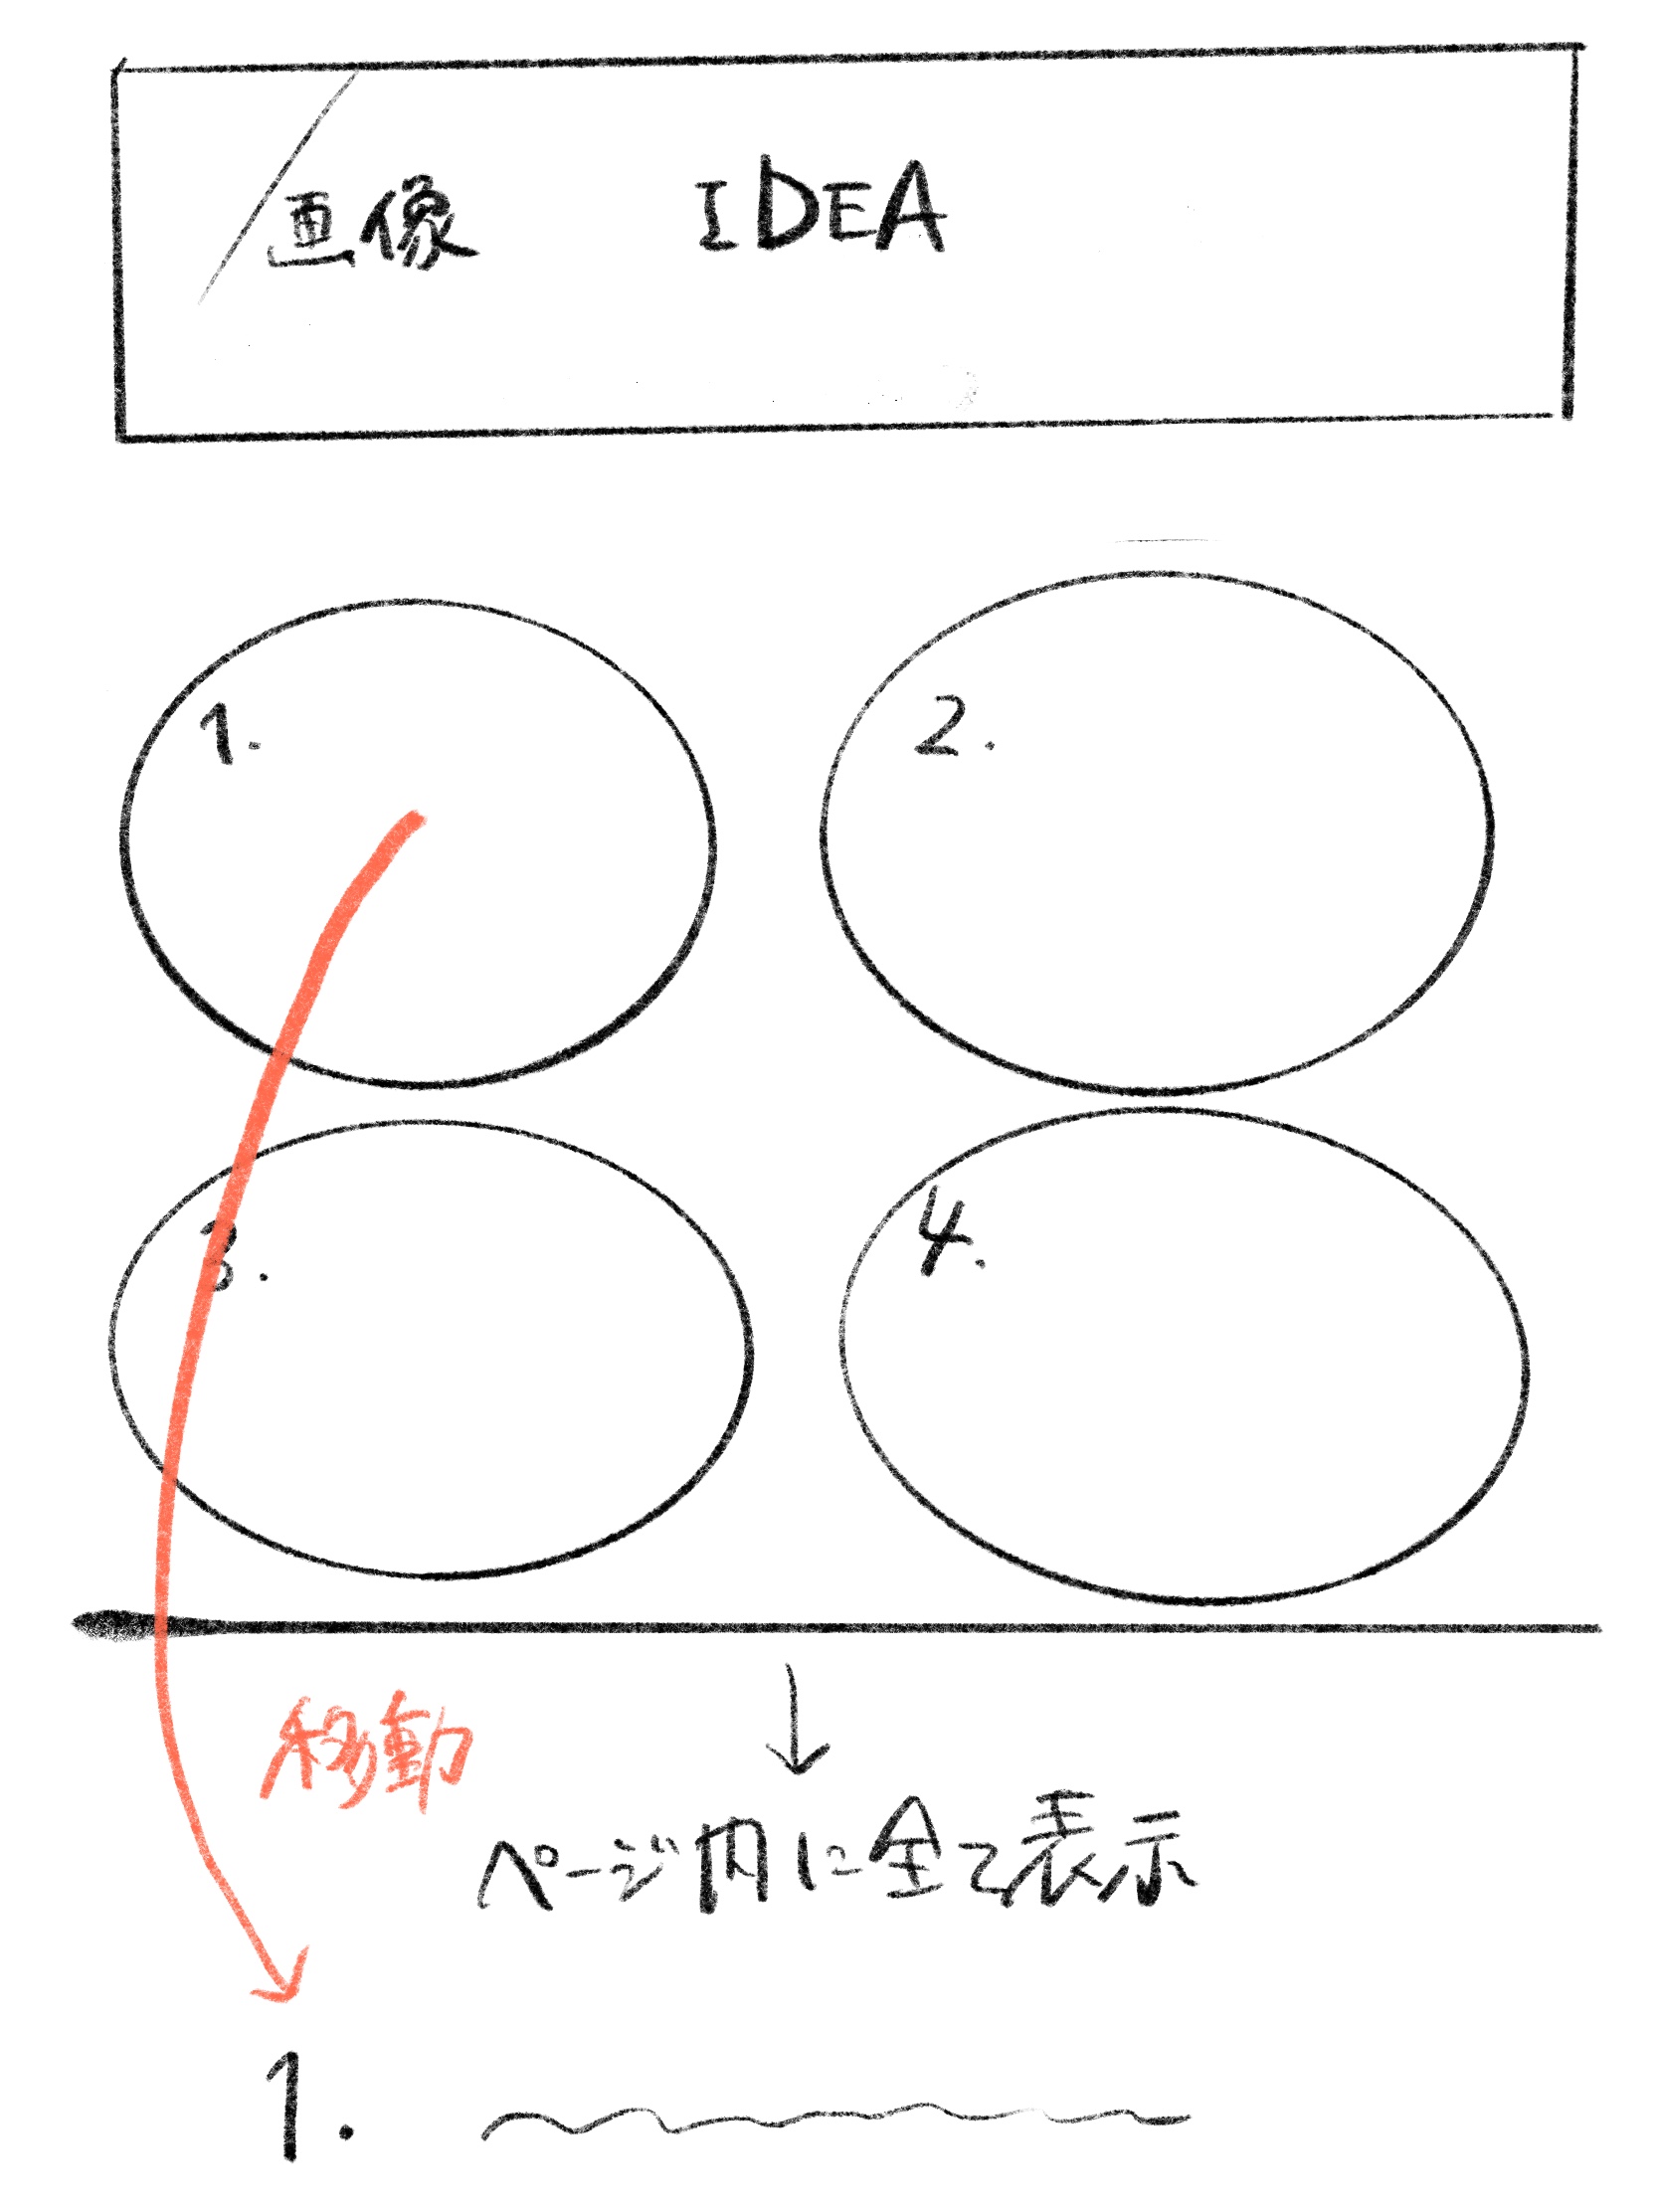 画像 IDEA
1.
2.
3.
4.
移動
ページ内に全て表示
1.